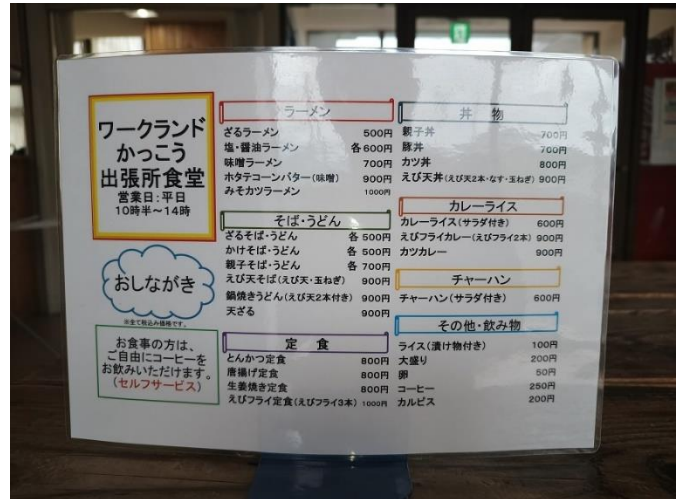 ワークランド
かっこう
出張所食堂
営業日:平日
10時半～14時
おしながき
※全て税込み価格です。
お食事の方は、
ご自由にコーヒーを
お飲みいただけます。
(セルフサービス)
ラーメン
ざるラーメン 500円
塩・醤油ラーメン 各600円
味噌ラーメン 700円
ホタテコーンバター(味噌) 900円
みそカツラーメン 1000円
そば・うどん
ざるそば・うどん 各500円
かけそば・うどん 各500円
親子そば・うどん 各700円
えび天そば(えび天・玉ねぎ) 900円
鍋焼きうどん(えび天2本付き) 900円
天ざる 900円
定食
とんかつ定食 800円
唐揚げ定食 800円
生姜焼き定食 800円
えびフライ定食(えびフライ3本) 1000円
丼物
親子丼 700円
豚丼 700円
カツ丼 800円
えび天丼(えび天2本・なす・玉ねぎ) 900円
カレーライス
カレーライス(サラダ付き) 600円
えびフライカレー(えびフライ2本) 900円
カツカレー 900円
チャーハン
チャーハン(サラダ付き) 600円
その他・飲み物
ライス(漬け物付き) 100円
大盛り 200円
卵 50円
コーヒー 250円
カルピス 200円